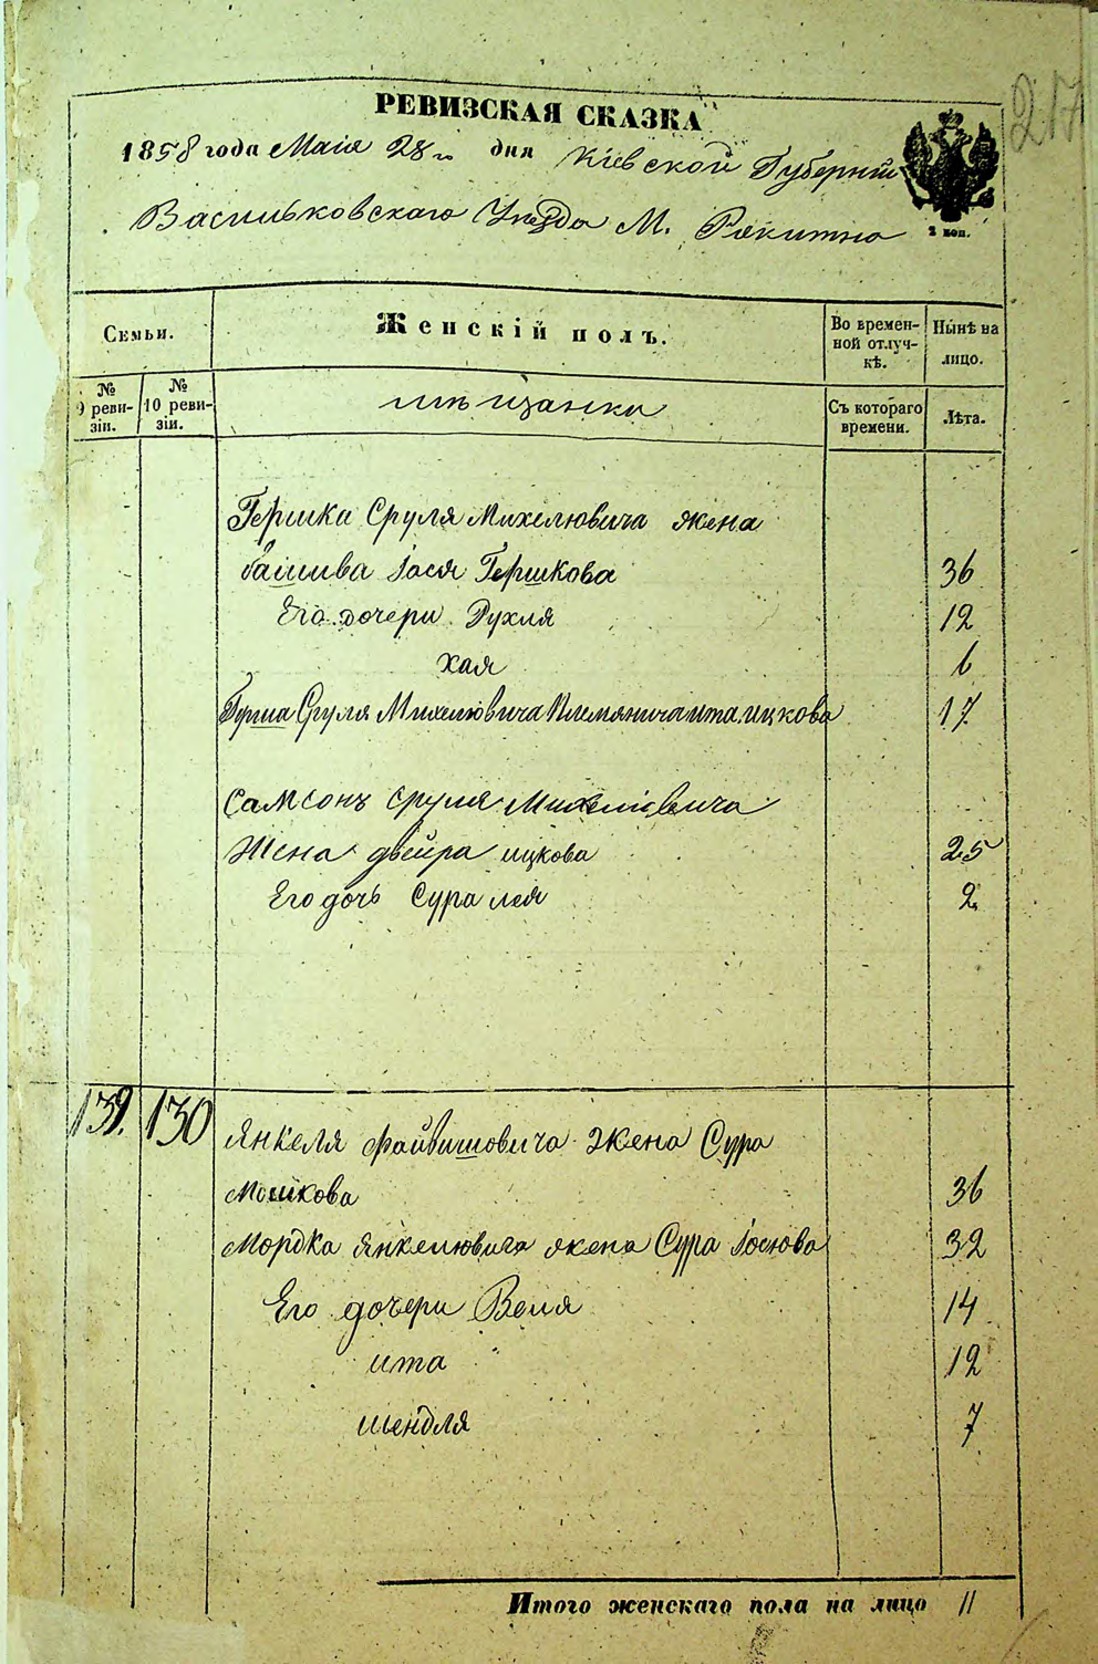 217
РЕВИЗСКАЯ СКАЗКА
1858 года Маія 28го дня Кіевской Губерніи
Васильковскаго Уѣзда М. Ракитно
2 коп.
Семьи.
Женскій полъ.
Во времен-
ной отлуч-
кѣ.
Нынѣ на
лицо.
№
9 реви-
зіи.
№
10 реви-
зіи.
мѣщанки
Съ котораго
времени.
Лѣта.
Гершка Сруля Михелювича жена
Башива Іося Гершкова 36
Его дочери Рухля 12
хая 6
Сруля Михелювича Племянича ита ицкова 17
Самсонъ сруля Михелювича
Жена двейра ицкова 25
Его дочь Сура лея 2
139. 130 Янкеля Файвишовича жена Сура
Мошкова 36
Мордка Янкелювича жена Сура Іосіова 32
Его дочери Веля 14
ита " 12
шендля 7
Итого женскаго пола на лицо 11